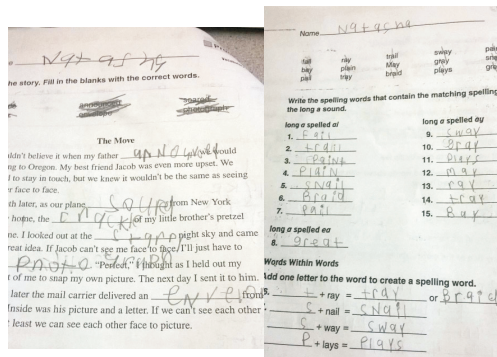 Natasha
he story. Fill in the blanks with the correct words.
The Move
uldn't believe it when my father we would
ng to Oregon. My best friend Jacob was even more upset. We
l to stay in touch, but we knew it wouldn't be the same as seeing
er face to face.
th later, as our plane from New York
home, the of my little brother's pretzel
ne. I looked out at the night sky and came
reat idea. If Jacob can't see me face to face, I'll just have to
"Perfect," I thought as I held out my
t of me to snap my own picture. The next day I sent it to him.
later the mail carrier delivered an from
Inside was his picture and a letter. If we can't see each other
t least we can see each other face to picture.
Name Natasha
fail ray trail sway
bay plain May gray
pail tray braid plays
Write the spelling words that contain the matching spelling
the long a sound.
long a spelled ai
1. Fail
2. trail
3. Paint
4. Plain
5. Snail
6. Braid
7. Pail
long a spelled ea
8. great
long a spelled ay
9. sway
10. Gray
11. Plays
12. may
13. ray
14. tray
15. Bay
Words Within Words
Add one letter to the word to create a spelling word.
t + ray = tray or Braid
S + nail = SNail
S + way = sway
P + lays = Plays